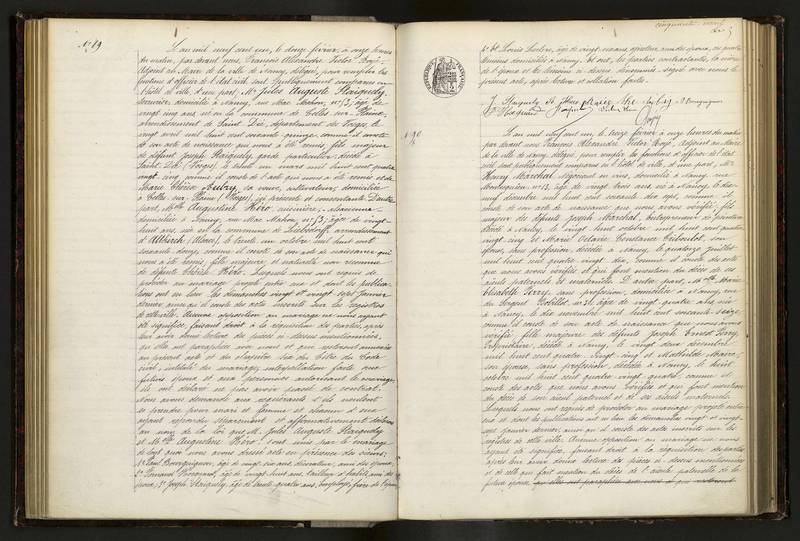 N° 89
L'an mil neuf cent un, le douze février, à onze heures
du matin, par devant nous, François Alexandre Victor
Adjoint au Maire de la ville de Nancy, délégué, pour remplir les
fonctions d'officier de l'état civil, sont publiquement comparus en
l'hôtel de ville, d'une part, M. Jules Auguste
domicilié à Nancy, rue Mac Mahon, n° 73, âgé de
vingt cinq ans, né en la commune de Celles sur Plaine,
arrondissement de Saint Dié, département des Vosges, le
vingt avril mil huit cent soixante quinze, comme il conste
de son acte de naissance qui nous a été remis, fils majeur
de défunt Joseph garde particulier, décédé à
mars mil huit cent quatre
vingt cinq, comme il conste de l'acte qui nous a été remis, et de
Marie Thérèse Aubry, sa veuve, cultivateur, domiciliée
à Celles sur Plaine (Vosges), ici présente et consentante. D'autre
part, Mlle Augustine Héro, cuisinière,
domiciliée à Nancy, rue Mac Mahon, n° 73, âgée de vingt
huit ans, née en la commune de arrondissement
d'Altkirch (Alsace), le trente un octobre mil huit cent
soixante douze, comme il conste de son acte de naissance qui
nous a été remis, fille majeure et naturelle non reconnue
de défunte Thérèse Héro. Lesquels nous ont requis de
procéder au mariage projeté entre eux et dont les publica-
tions ont eu lieu les dimanches vingt et vingt sept janvier
dernier ainsi qu'il conste des actes inscrits sur les registres
de cette ville. Aucune opposition au mariage ne nous ayant
été signifiée, faisant droit à la réquisition des parties, après
leur avoir donné lecture des pièces ci-dessus mentionnées,
qu'elles ont paraphées avec nous et qui resteront annexées
au présent acte et du chapitre six du titre du Code
civil, intitulé du mariage, interpellation faite aux
futurs époux et aux personnes autorisant le mariage,
ils ont déclaré ne pas avoir passé de contrat.
Nous avons demandé aux requérants s'ils veulent
se prendre pour mari et femme et chacun d'eux
ayant répondu séparément et affirmativement, déclarons
au nom de la loi que M. Jules Auguste
et Mlle Augustine Héro sont unis par le mariage
de tout quoi nous avons dressé acte en présence des sieurs:
1° Paul Bourguignon, âgé de vingt six ans, décorateur, ami des époux,
2° Fernand âgé de vingt huit ans, tailleur d'habits, ami des
époux, 3° Joseph âgé de trente quatre ans, employé, frère de l'époux
cinquante neuf
4° et Louis âgé de vingt six ans, ami des époux, ces quatre
témoins domiciliés à Nancy. Et ont, les parties contractantes, la mère
de l'époux et les témoins ci-dessus dénommés, signé avec nous le
présent acte, après lecture et collation faites.
N° 90
L'an mil neuf cent un, le treize février à onze heures du matin
par devant nous François Alexandre Victor adjoint au Maire
de la ville de Nancy, délégué pour remplir les fonctions d'officier de l'état
civil, sont publiquement comparus en l'hôtel de ville, d'une part, M.
Henry Marchal, négociant en vins, domicilié à Nancy, rue
Montesquieu n° 13, âgé de vingt trois ans, né à Nancy, le dix
neuf décembre mil huit cent soixante dix sept, comme il
conste de son acte de naissance que nous avons vérifié, fils
majeur des défunts Joseph Marchal, entrepreneur de peinture
décédé à Nancy, le vingt huit octobre mil huit cent quatre
vingt cinq et Marie Octavie Constance Thiboulot, son
épouse, sans profession, décédée à Nancy, le quatorze juillet
mil huit cent quatre vingt dix, comme il conste des actes
que nous avons vérifiés et qui font mention du décès de ses
aïeuls paternels et maternels. D'autre part, Mlle Marie
Elisabeth Perry, sans profession, domiciliée à Nancy, rue
du Sergent Blobillot, n° 31, âgée de vingt quatre ans, née
à Nancy, le dix novembre mil huit cent soixante seize,
comme il conste de son acte de naissance que nous avons
vérifié, fille majeure des défunts Joseph Ernest Perry,
décédé à Nancy, le vingt deux décembre
mil huit cent quatre vingt cinq et Mathilde Maire,
son épouse, sans profession, décédée à Nancy, le huit
octobre mil huit cent quatre vingt quatre, comme il
conste des actes que nous avons vérifiés et qui font mention
du décès de son aïeul paternel et de ses aïeuls maternels.
Lesquels nous ont requis de procéder au mariage projeté entre
eux et dont les publications ont eu lieu les dimanches vingt et vingt
sept janvier dernier, ainsi qu'il conste des actes inscrits sur les
registres de cette ville. Aucune opposition au mariage ne nous
ayant été signifiée, faisant droit à la réquisition des parties
après leur avoir donné lecture des pièces ci-dessus mentionnées
et de celle qui fait mention du décès de l'aïeule paternelle de la
future épouse qu'elles ont paraphées avec nous et qui resteront